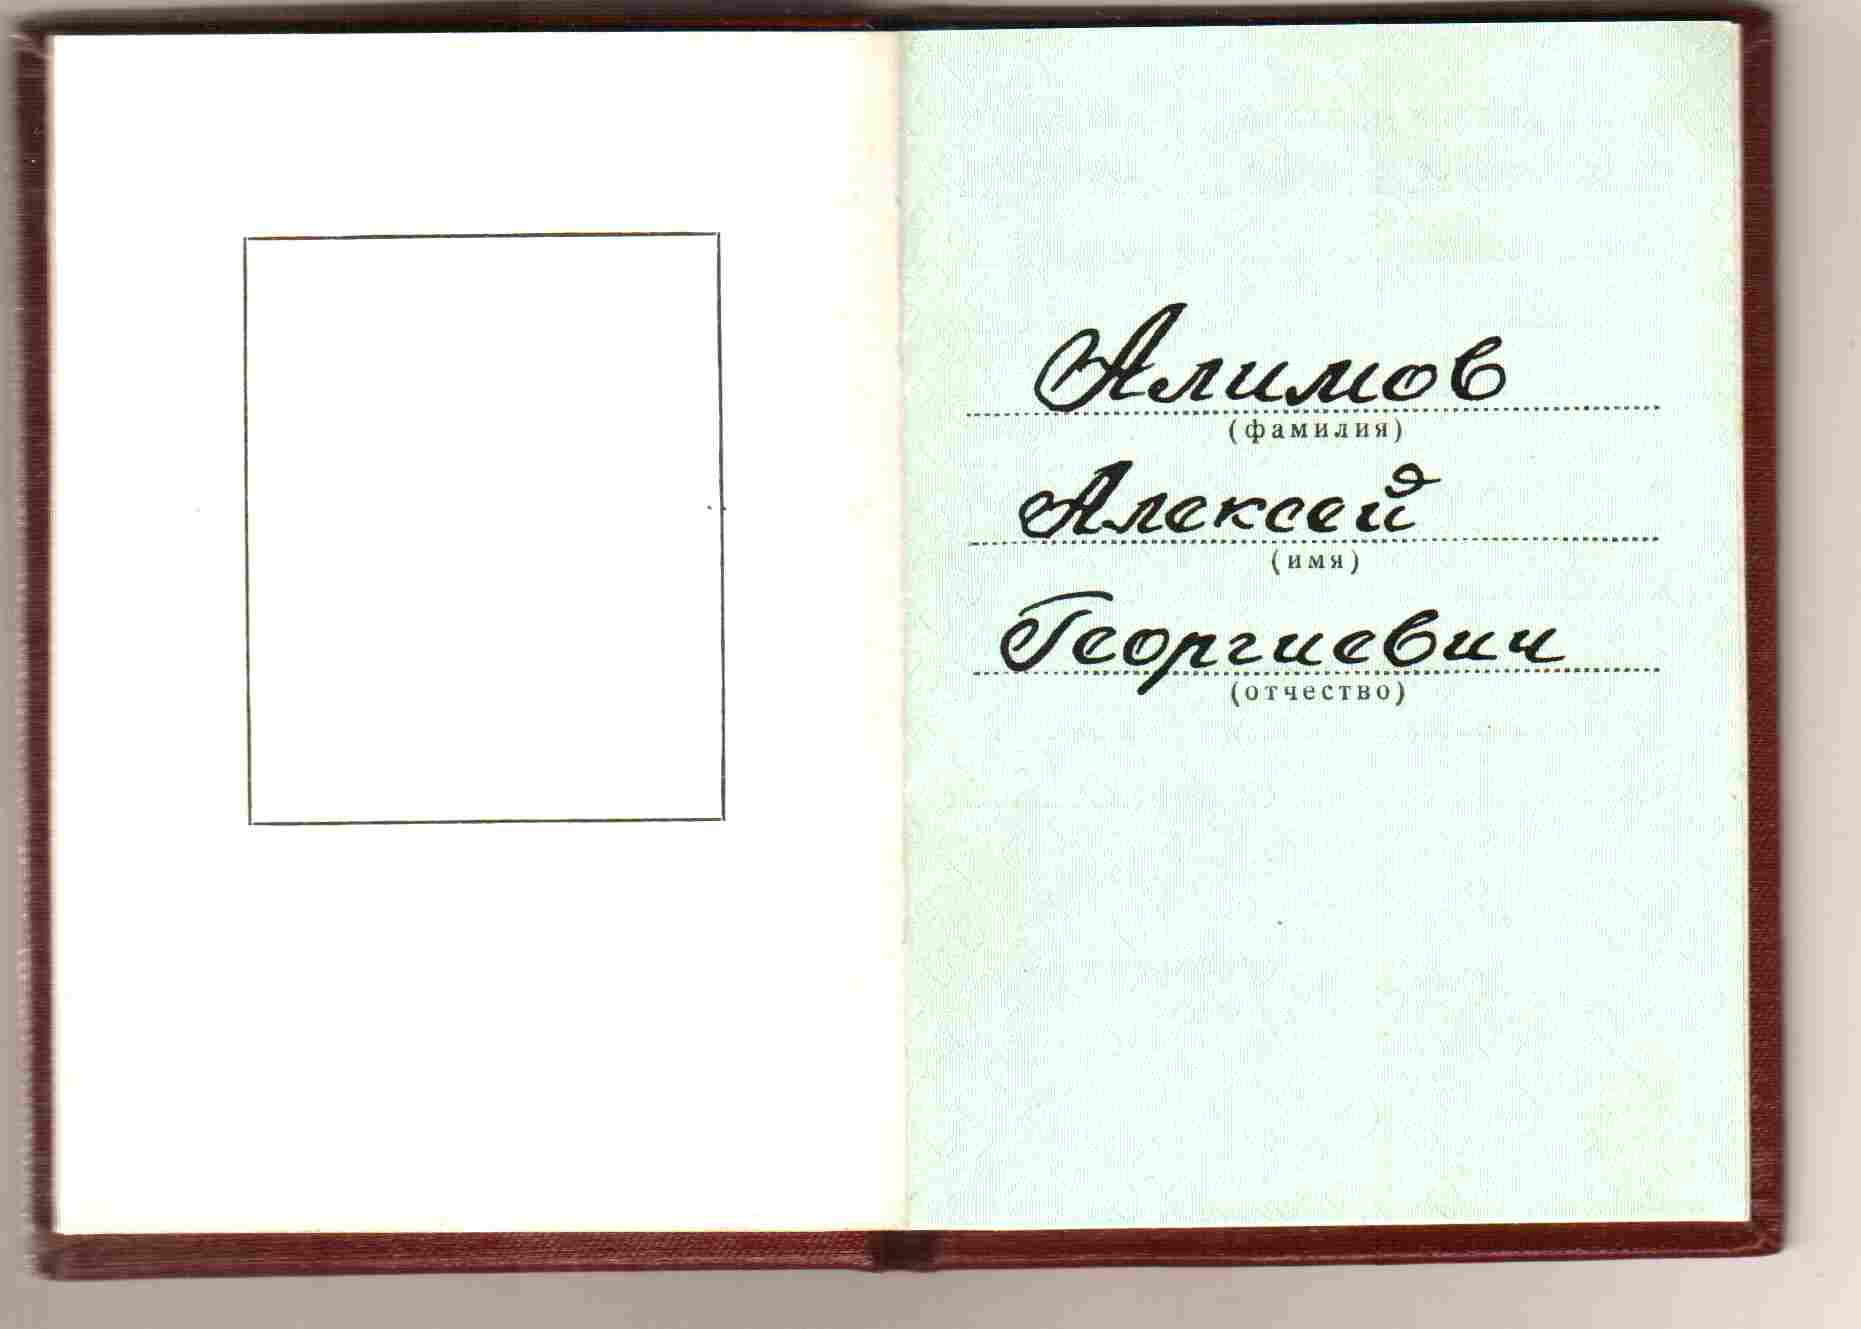 Алимов
(фамилия)
Алексей
(имя)
Георгиевич
(отчество)